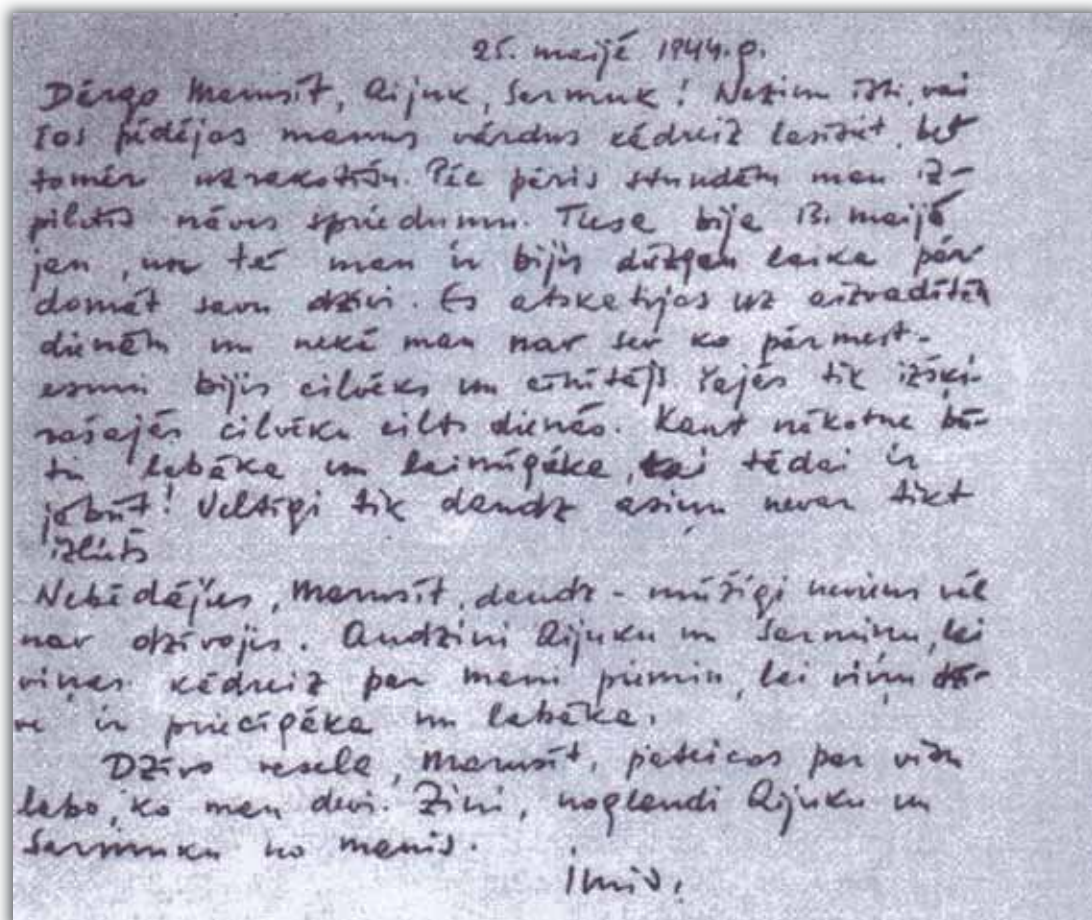 25. maijā 1944.g.
Dārgo Mamsīt, Aijuk, Sarmuk! Nezinu īsti, vai
šos pēdējos manus vārdus kādreiz lasīsiet, bet
tomēr uzrakstīšu. Pēc pāris stundām man iz-
pildīs nāves spriedumu. Tiesa bija 13. maijā
jau, un tā man ir bijis diezgan laika pār-
domāt savu dzīvi. Es atskatījos uz aizvadītām
dienām un nekā man nav sev ko pārmest -
esmu bijis cilvēks un cīnītājs šajās tik izšķi-
rošajās cilvēku cilts dienās. Kaut nākotne bū-
tu labāka un laimīgāka, tai tādai ir
jābūt! Veltīgi tik daudz asiņu nevar tikt
izliets
Nebēdājies, Mamsīt, daudz - mūžīgi neviens vēl
nav dzīvojis. Audzini Aijuku un Sarmiņu, lai
viņas kādreiz par mani piemin, lai viņu dzī-
ve ir priecīgāka un labāka.
Dzīvo vesela, Mamsīt, pateicos par visu
labo, ko man devi. Zini, noglaudi Aijuku un
Sarmuku no manis.
Imis.